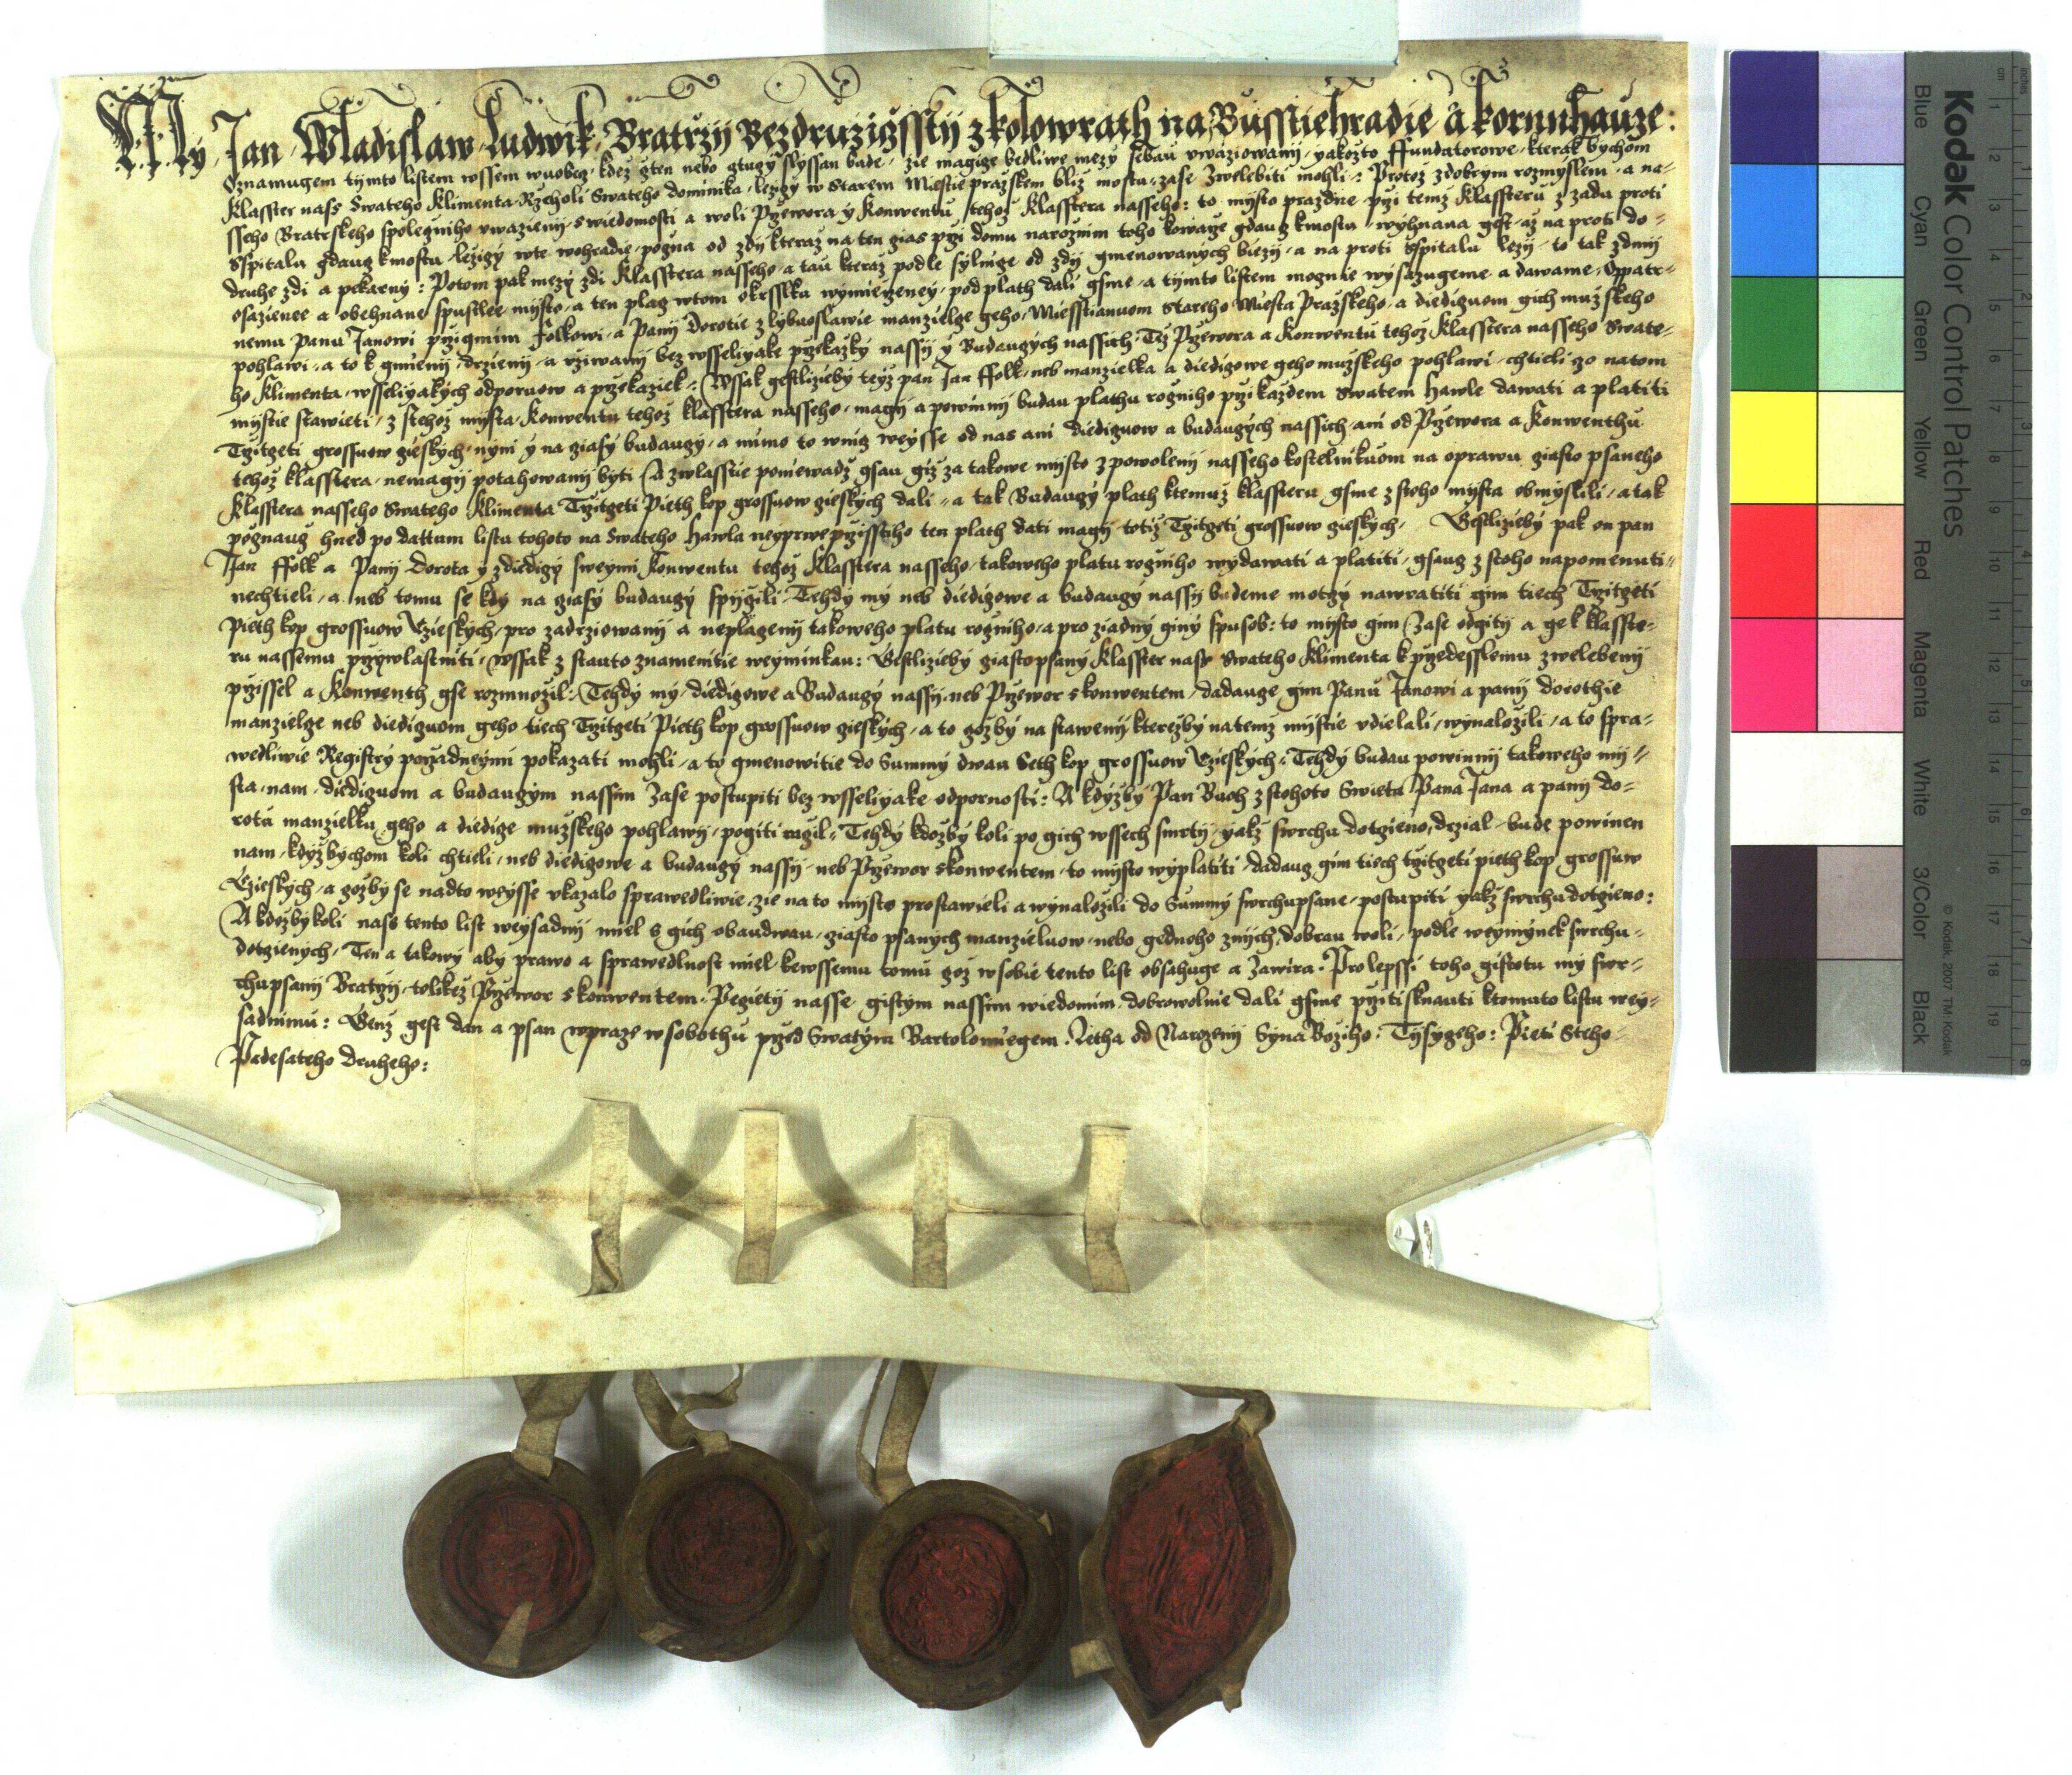 My Jan Wladislaw Ludwik Bratrzij Bezdruzigssty z kolowrath na Busstiehradie a kornnhauze:
Oznamugem tijmto listem wssem wuobecz kdez cžten nebo cztuczy slyssan bude, zie magicze bedliwe mezy sebau vwaziowanij, yakozto ffundatorowe kterak bychom
Klasster nass Swateho Klimenta Rzeholi Swateho dominika, lezycy w Starem Miestie prazskem bliz mostu, zase zwelebiti mohli: Protoz z dobrym rozmyslem, a na-
sseho Bratrskeho spolecžniho vwazienij, s wiedomosti a woli Przewora y Konwentu tehoz klasstera nasseho: to mijsto prazdne przi temz klassteru z zadu proti
Sspitalu gdaucz k mostu lezicy wte wohradie, pocžna od zdy kteraz na ten cžas przi domu naroznim toho kowarže gdaucz k mostu wyhnana gest, az na proti do-
druhe zdi a pekarny: Potom pak mezy zdi Klasstera nasseho, a tau kteraz podle sylnicze od zdij gmenowanych biezij, a na proti Sspitalu lezij, to tak zdmij
osazienee a obehnane spustlee mijsto, a ten placz wtom okrsslku wymierzeney, pod plath dali gsme, a tijmto listem mocznie wysazugeme a dawame, Opatr-
nemu Panu Janowi przigmim Folkowi, a Panij Dorotie z lybuoslawie manzielcze geho, Miesstianuom Stareho Miesta Prazskeho, a diediczuom gich muzskeho
pohlawi, a to k gmienij, drzienij, a vziwanij bez wsseliyake przekazky nassij y Budauczych nassich, Tez Przewora a Konwentu tehoz Klasstera nasseho Swate-
ho Klimenta, wsseliyakych odporuow a przekaziek: Wssak gestlizieby teyz pan Jan ffolk, neb manzielka a diediczowe geho muzskeho pohlawi, chtieli czo natom
mijstie stawieti, z stehoz mijsta Konwentu tehoz klasstera nasseho, magij a powinnij budau plathu rocžniho przi kazdem Swatem Hawle dawati a platiti
Trzitczeti grossuow cžeskych, nyni y na cžasy budauczy, a mimo to wnicz weysse od nas ani diediczuow a budauczych nassich, ani od Przewora a Konwenthu
tehoz klasstera, nemagij potahowanij byti A zwlasstie poniewadz gsau giz za takowe mijsto z powolenij nasseho kostelnikuom na oprawu cžasto psaneho
Klasstera nasseho Swateho Klimenta Trzitczeti Pieth kop grossuow cžeskych dali, a tak Budauczy plath ktemuz klassteru gsme z stoho mijsta obmyslili, a tak
pocžnaucz hned po dattum listu tohoto na Swateho Hawla neyprwe przisstiho ten plath dati magij totiz Trzitczeti grossuow cžeskych, Gestlizieby pak on pan
Jan ffolk a Panij Dorota y z diediczy sweymi Konwentu tehoz Klasstera nasseho, takoweho platu rocžniho wydawati a platiti, gsaucz z stoho napomenuti
nechtieli, a neb tomu se kdy na cžasy budauczy sprziczili Tehdy my neb diediczowe a budauczy nassij budeme moczy nawratiti gim tiech Trzitczeti
Pieth kop grossuow Cžeskych, pro zadrziowanij a neplaczenij takoweho platu rocžniho, a pro ziadny giny spusob: to mijsto gim Zase odgiti a ge k klasste-
ru nassemu przywlastniti, Wssak z stauto znamenitie weyminkau: Gestlizieby cžastopsany Klasster nass Swateho Klimenta k przedesslemu zwelebenij
przissel a Konwenth gse rozmnozil: Tehdy my, diediczowe a Budauczy nassij, neb Przewor s konwentem, dadaucze gim Panu Janowi a panij dorothie
manzielcze neb diediczuom geho tiech Trzitczeti Pieth kop grossuow cžeskych, a to czozby na stawenij kterezby na temz mijstie vdielali, wynalozili, a to spra-
wedliwie Registry porzadneymi pokazati mohli, a to gmenowitie do Summy dwau Seth kop grossuow Cžeskych, Tehdy budau powinnij takoweho mij-
sta, nam, diediczuom a budauczym nassim Zase postupiti bez wsseliyake odpornosti: A kdyzby Pan Buoh z stohoto Swieta Pana Jana a panij do-
rotu manzielku geho a diedicze muzskeho pohlawij, pogiti racžil, Tehdy kdozby koli po gich wssech smrti, yakz swrchu dotcžieno, drzial, bude powinen
nam, kdyzbychom koli chtieli, neb diediczowe a budauczy nassij, neb Przewor s konwentem, to mijsto wyplatiti, dadaucz gim tiech trzitczeti pieth kop grossuw
Cžeskych, a czozby se nadto weysse vkazalo sprawedliwie, zie na to mijsto prostawieli a wynalozili do Summy swrchupsane, postupiti yakz swrchu dotcžieno:
A kdozbykoli nass tento list weysadnij miel s gich obaudwau, cžasto psanych manzieluow, nebo gednoho znijch, dobrau woli, podle weyminek swrchu-
dotcžienych, Ten a takowy aby prawo a sprawedlnost miel kewssemu tomu czoz w sobie tento list obsahuge a Zawira. Pro lepssi toho gistotu my swr-
chupsanij Bratrzij, tolikez Przewor s konwentem, Pecžeti nasse gistym nassim wiedomim dobrowolnie dali gsme przitisknauti k tomuto listu wey-
sadnimu: Genz gest dan a psan w praze w sobothu przed Swatym Bartolomiegem. Letha od Narozenij Syna Boziho: Tisyczeho: Pieti Steho
Padesateho Druheho:
Kodak Color Control Patches
© Kodak, 2007 TM: Kodak
Blue Cyan Green Yellow Red Magenta White 3/Color Black
cm 1 2 3 4 5 6 7 8 9 10 11 12 13 14 15 16 17 18 19
inches 1 2 3 4 5 6 7 8